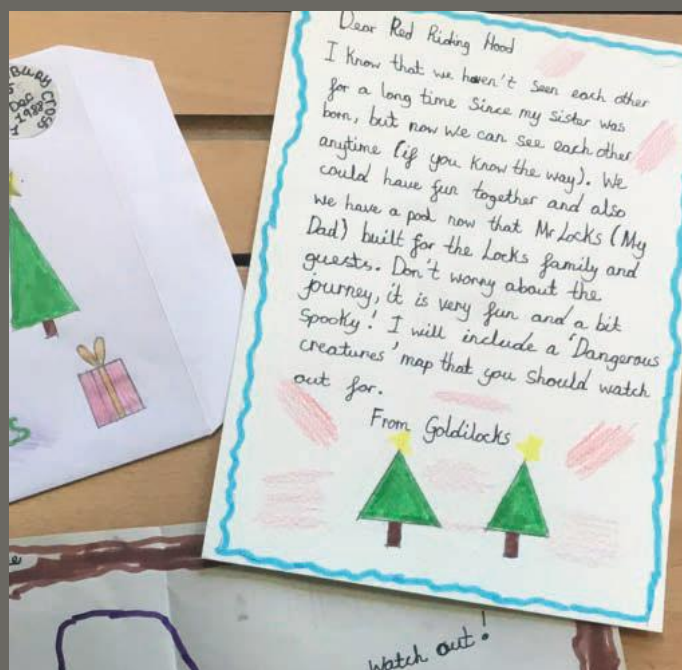 Bury Cross
Dec
1988
Dear Red Riding Hood
I know that we haven't seen each other
for a long time since my sister was
born, but now we can see each other
anytime (if you know the way). We
could have fun together and also
we have a pool now that Mr Locks (My
Dad) built for the Locks family and
guests. Don't worry about the
journey, it is very fun and a bit
spooky! I will include a 'Dangerous
creatures' map that you should watch
out for.
From Goldilocks
Watch out!